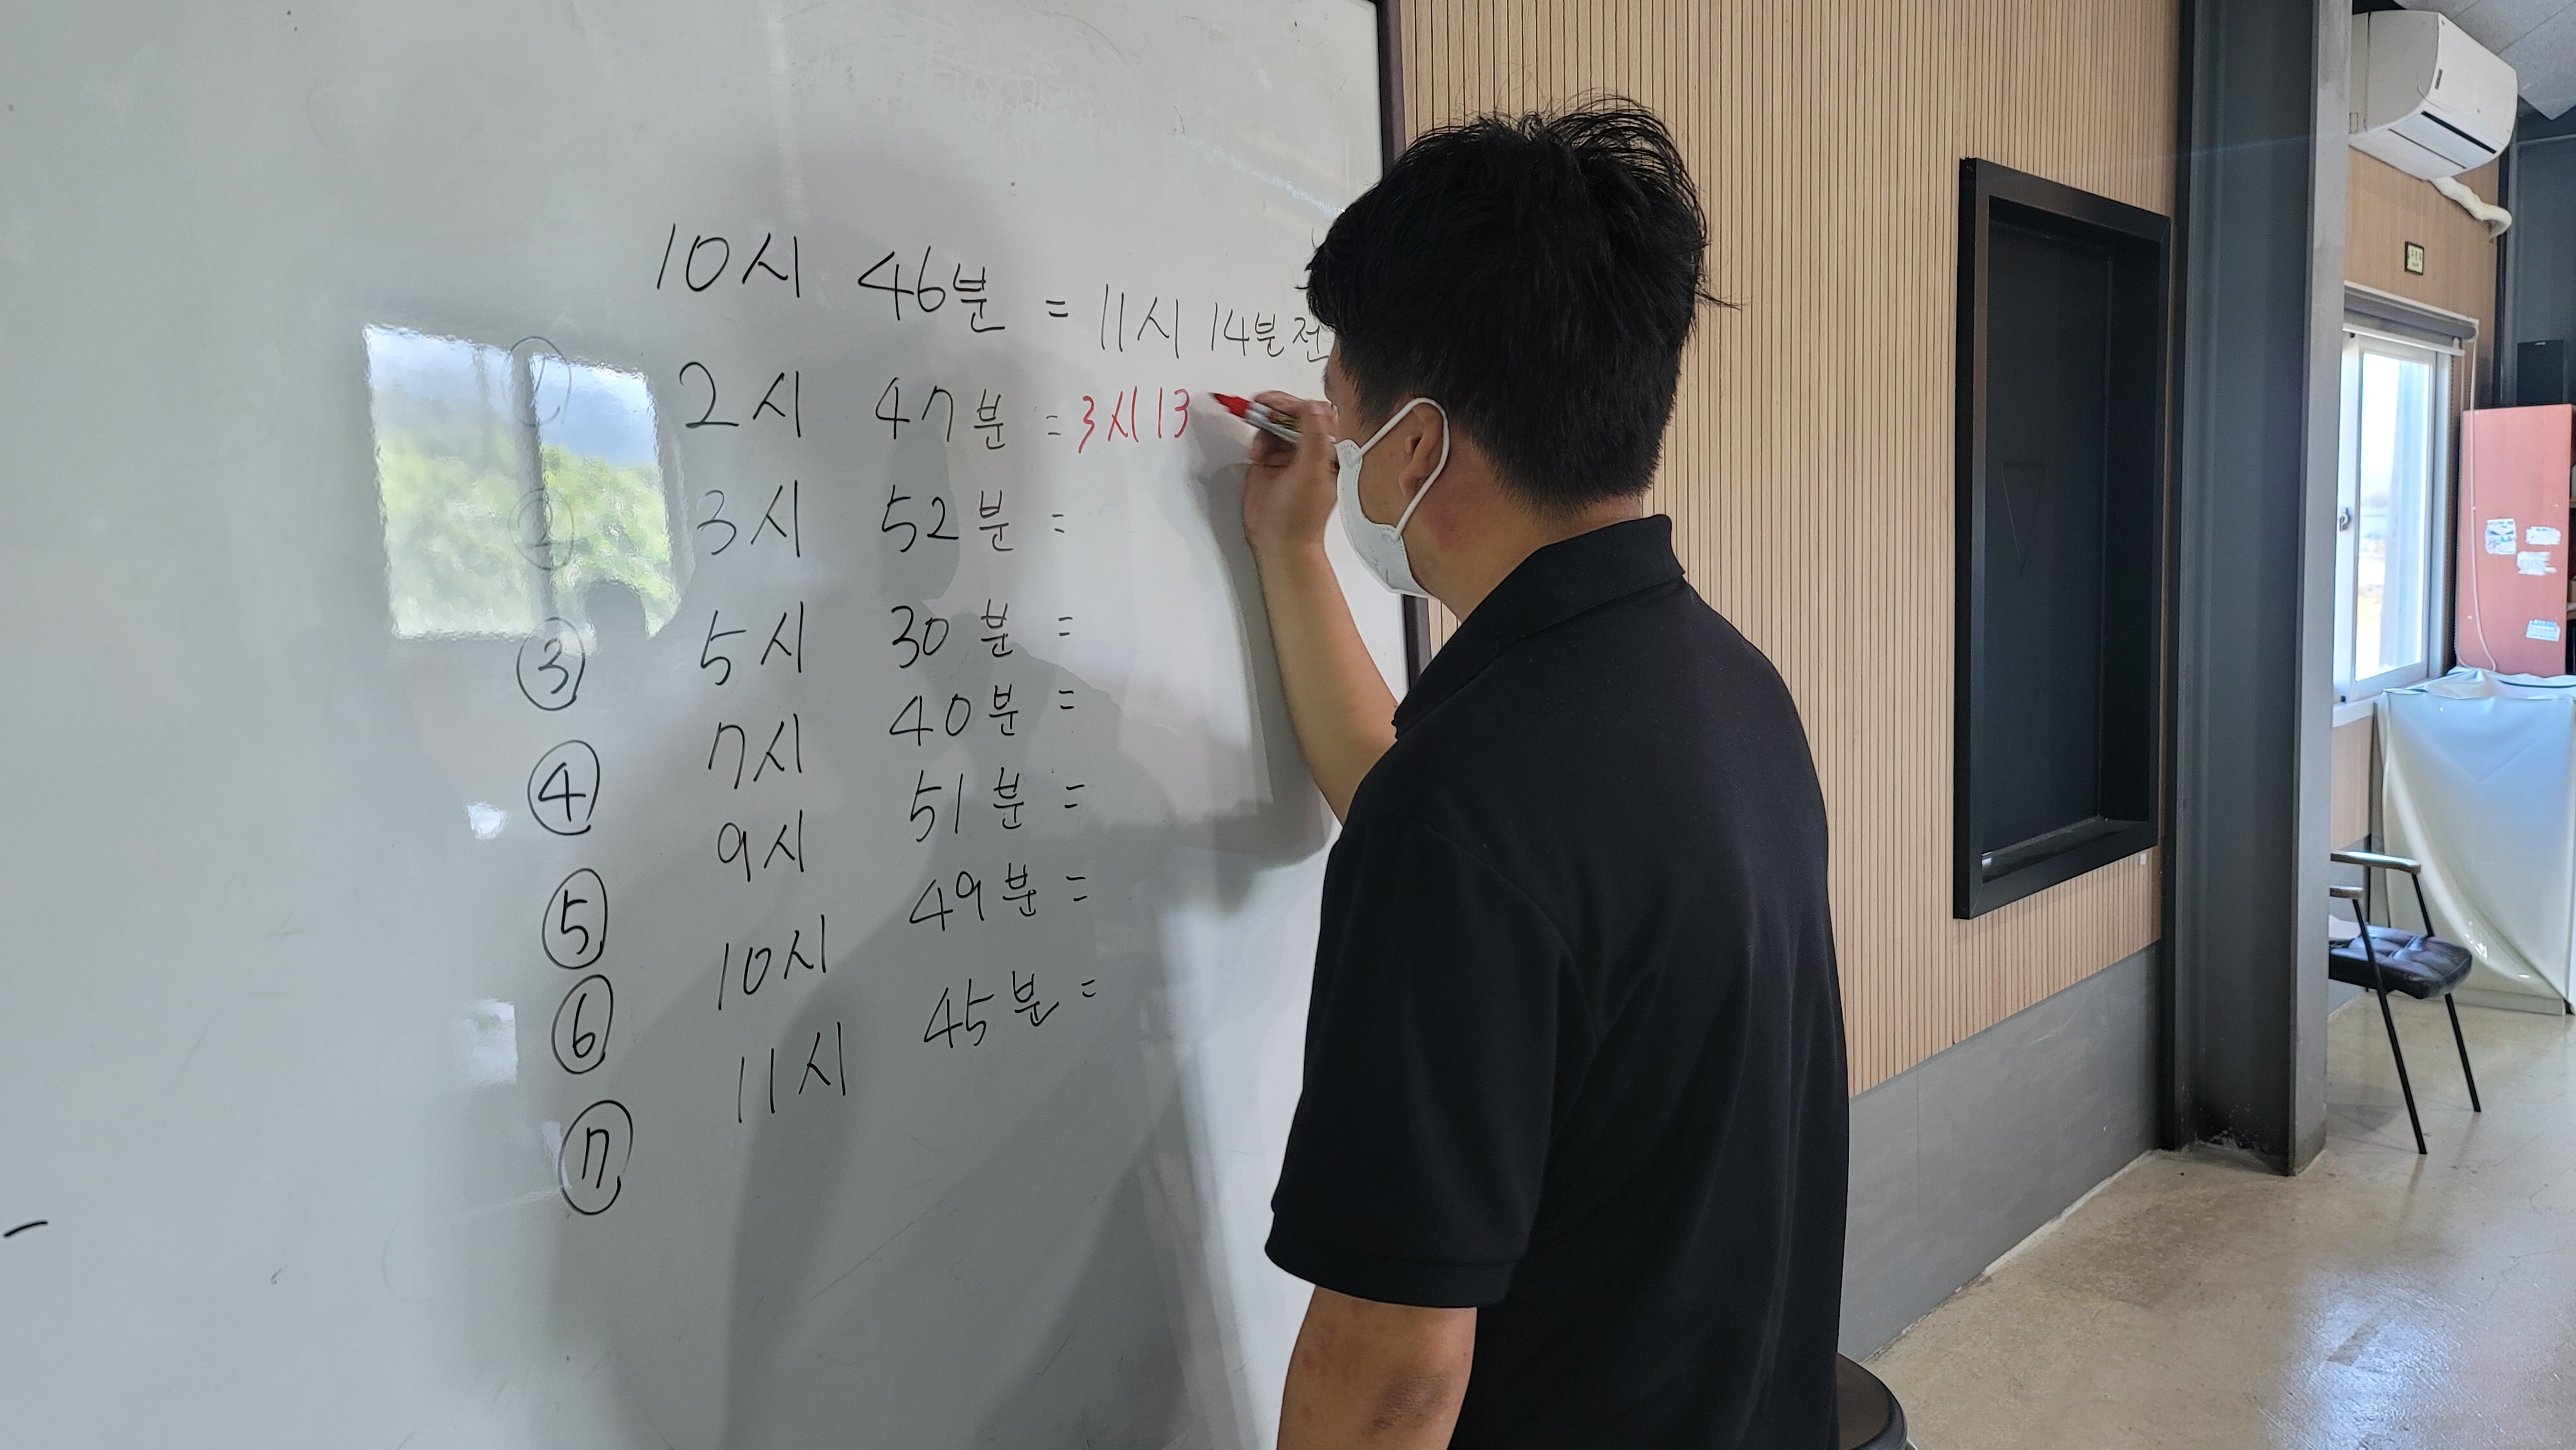 10시 46분 = 11시 14분 전
① 2시 47분 = 3시 13
② 3시 52분 =
③ 5시 30분 =
④ 7시 40분 =
⑤ 9시 51분 =
⑥ 10시 49분 =
⑦ 11시 45분 =